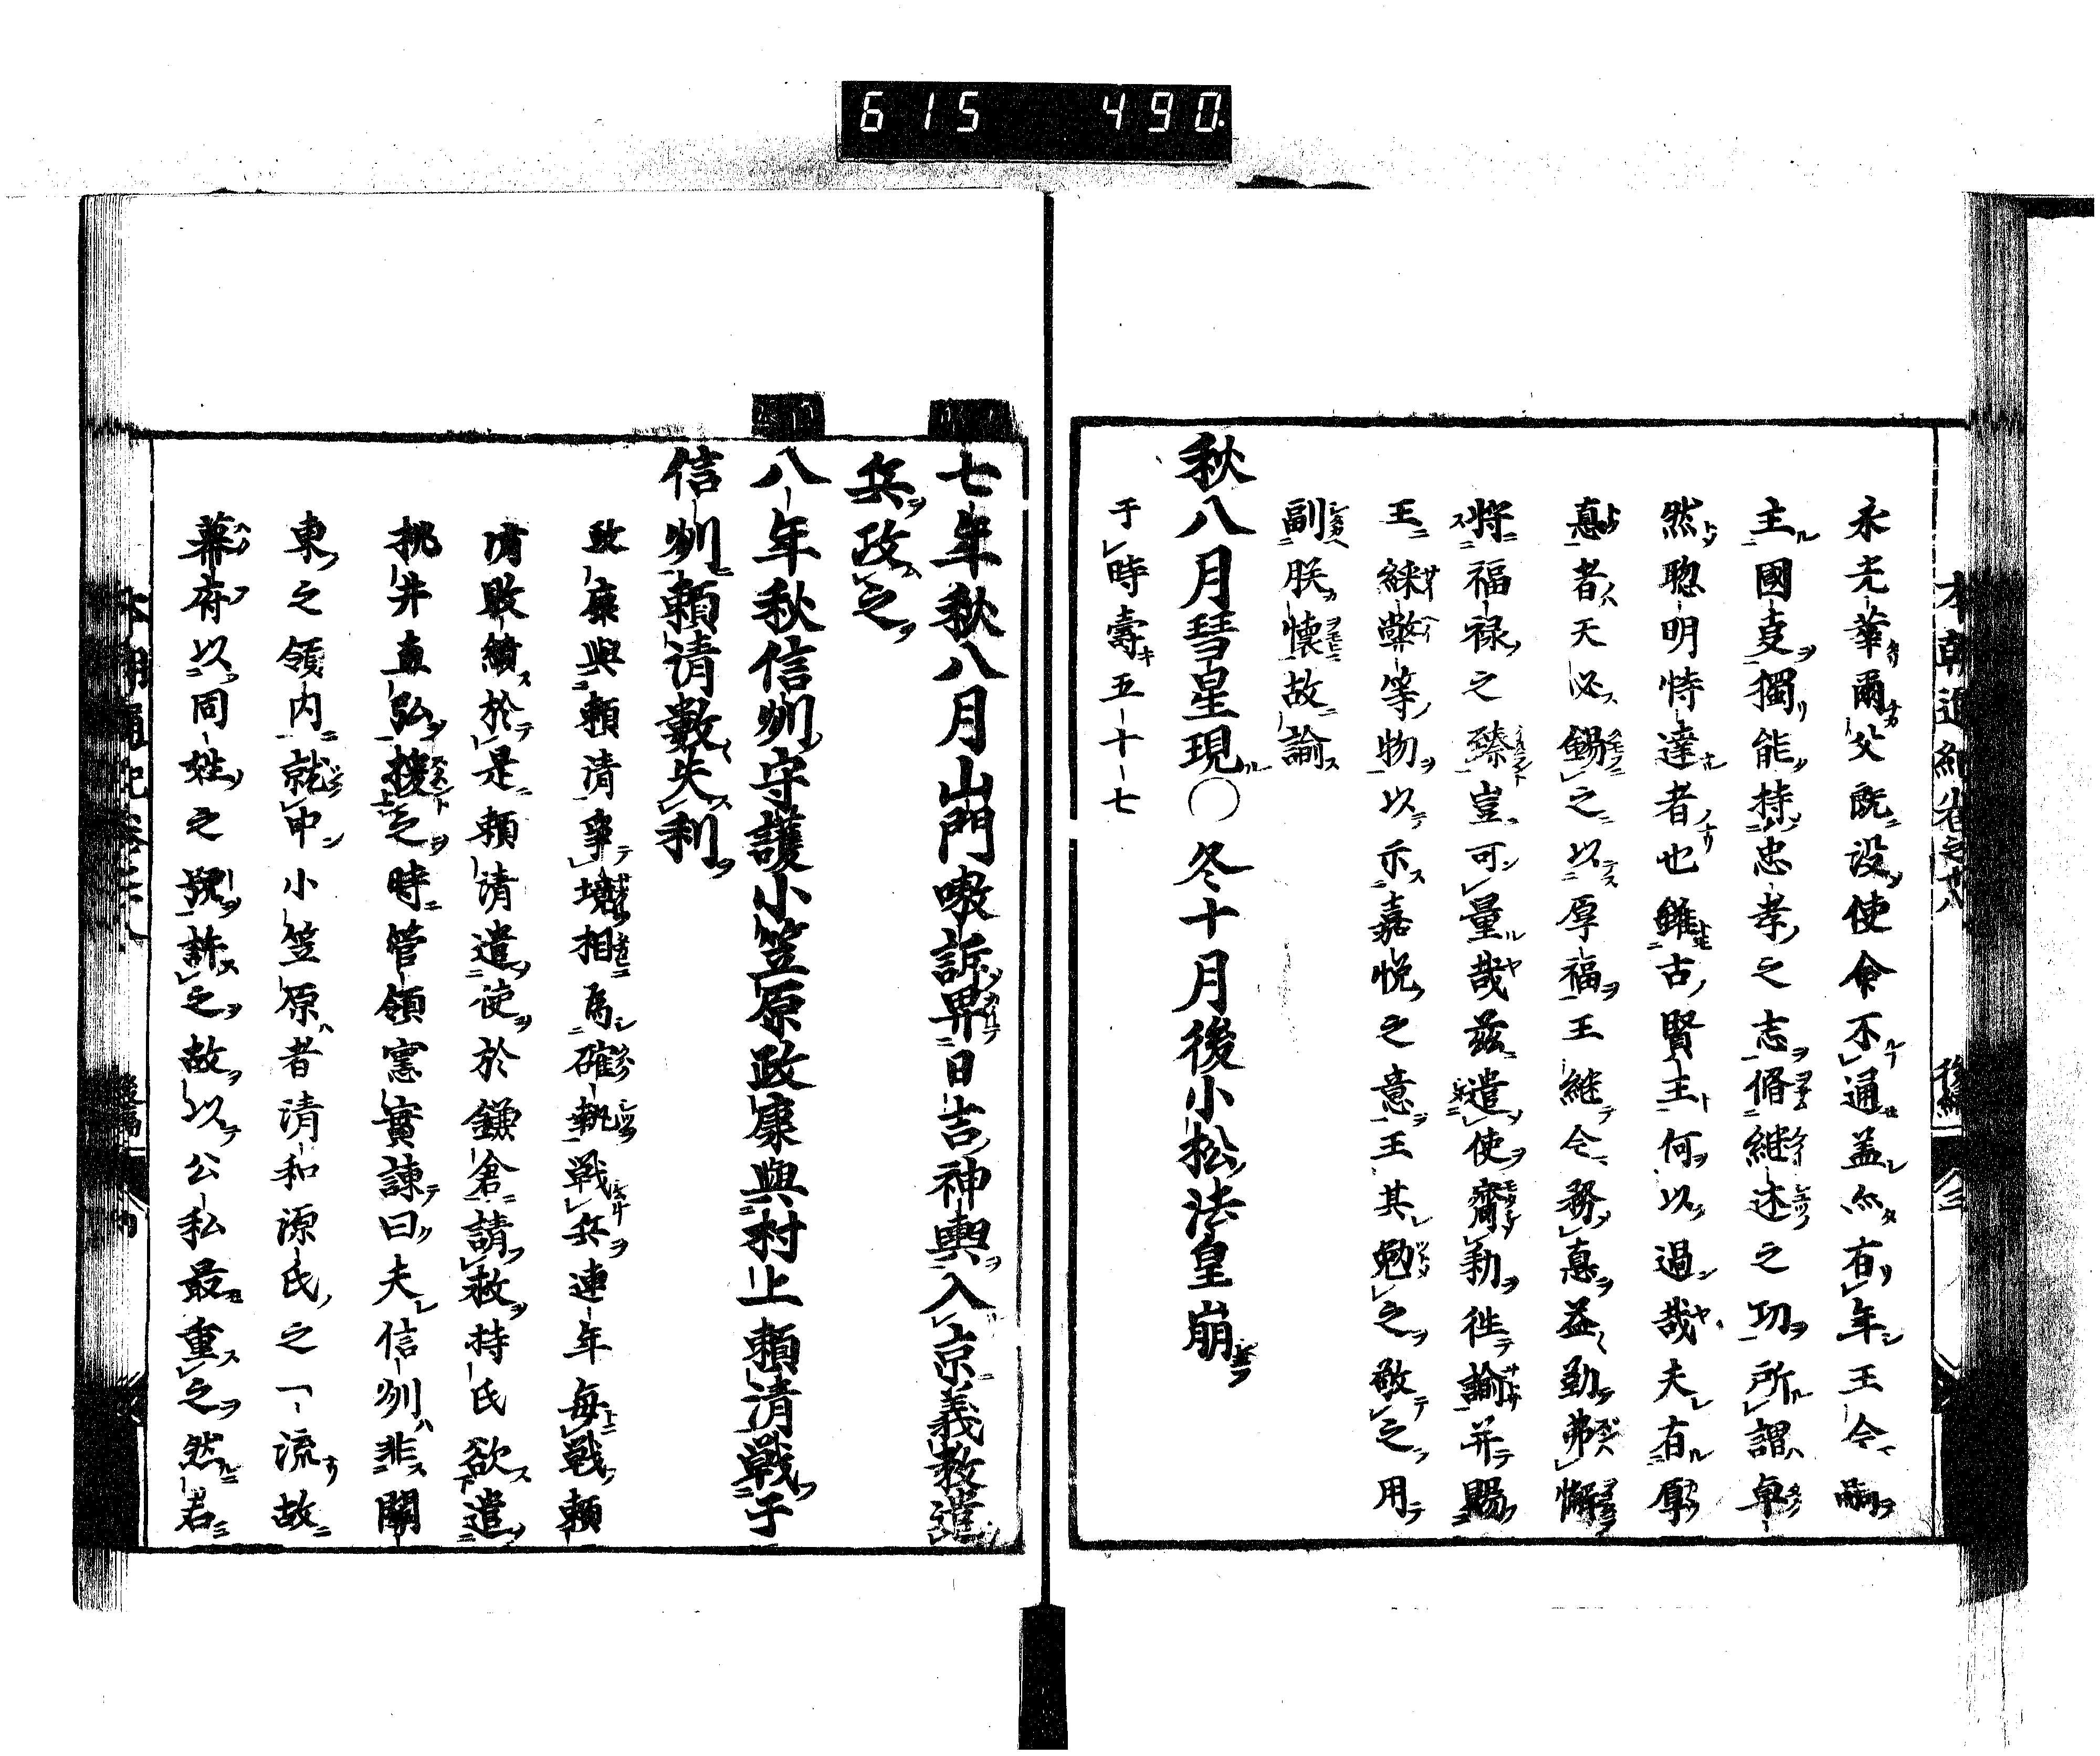 615 490
永光華爾父既没使命不通蓋亦有年王今嗣
主國事獨能持忠孝之志脩継述之功所謂卓
然聡明特達者也雖古賢王何以過哉夫有厚
悳者天必錫之以厚福王継今務悳益勤弗懈
将福禄之臻豈可量哉茲遣使齎勅徃諭并賜
王綵幣等物以示嘉悦之意王其勉之敬之用
副朕懐故諭
秋八月彗星現○冬十月後小松法皇崩
于時壽五十七
七年秋八月山門嗷訴舁日吉神輿入京義教遣
兵攻之
八年秋信州守護小笠原政康與村上頼清戦于
信州頼清数失利
政康與頼清爭境相為確執戦兵連年毎戦頼
清敗績於是頼清遣使於鎌倉請救持氏欲遣
桃井直弘援之時管領憲實諌曰夫信州非關
東之領内就中小笠原者清和源氏之一流故
幕府以同姓之親許之故以公私最重之然若